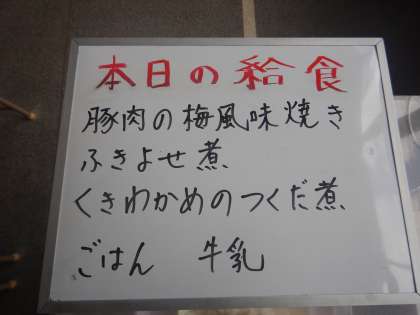 本日の給食
豚肉の梅風味焼き
ふきよせ煮
くきわかめのつくだ煮
ごはん 牛乳